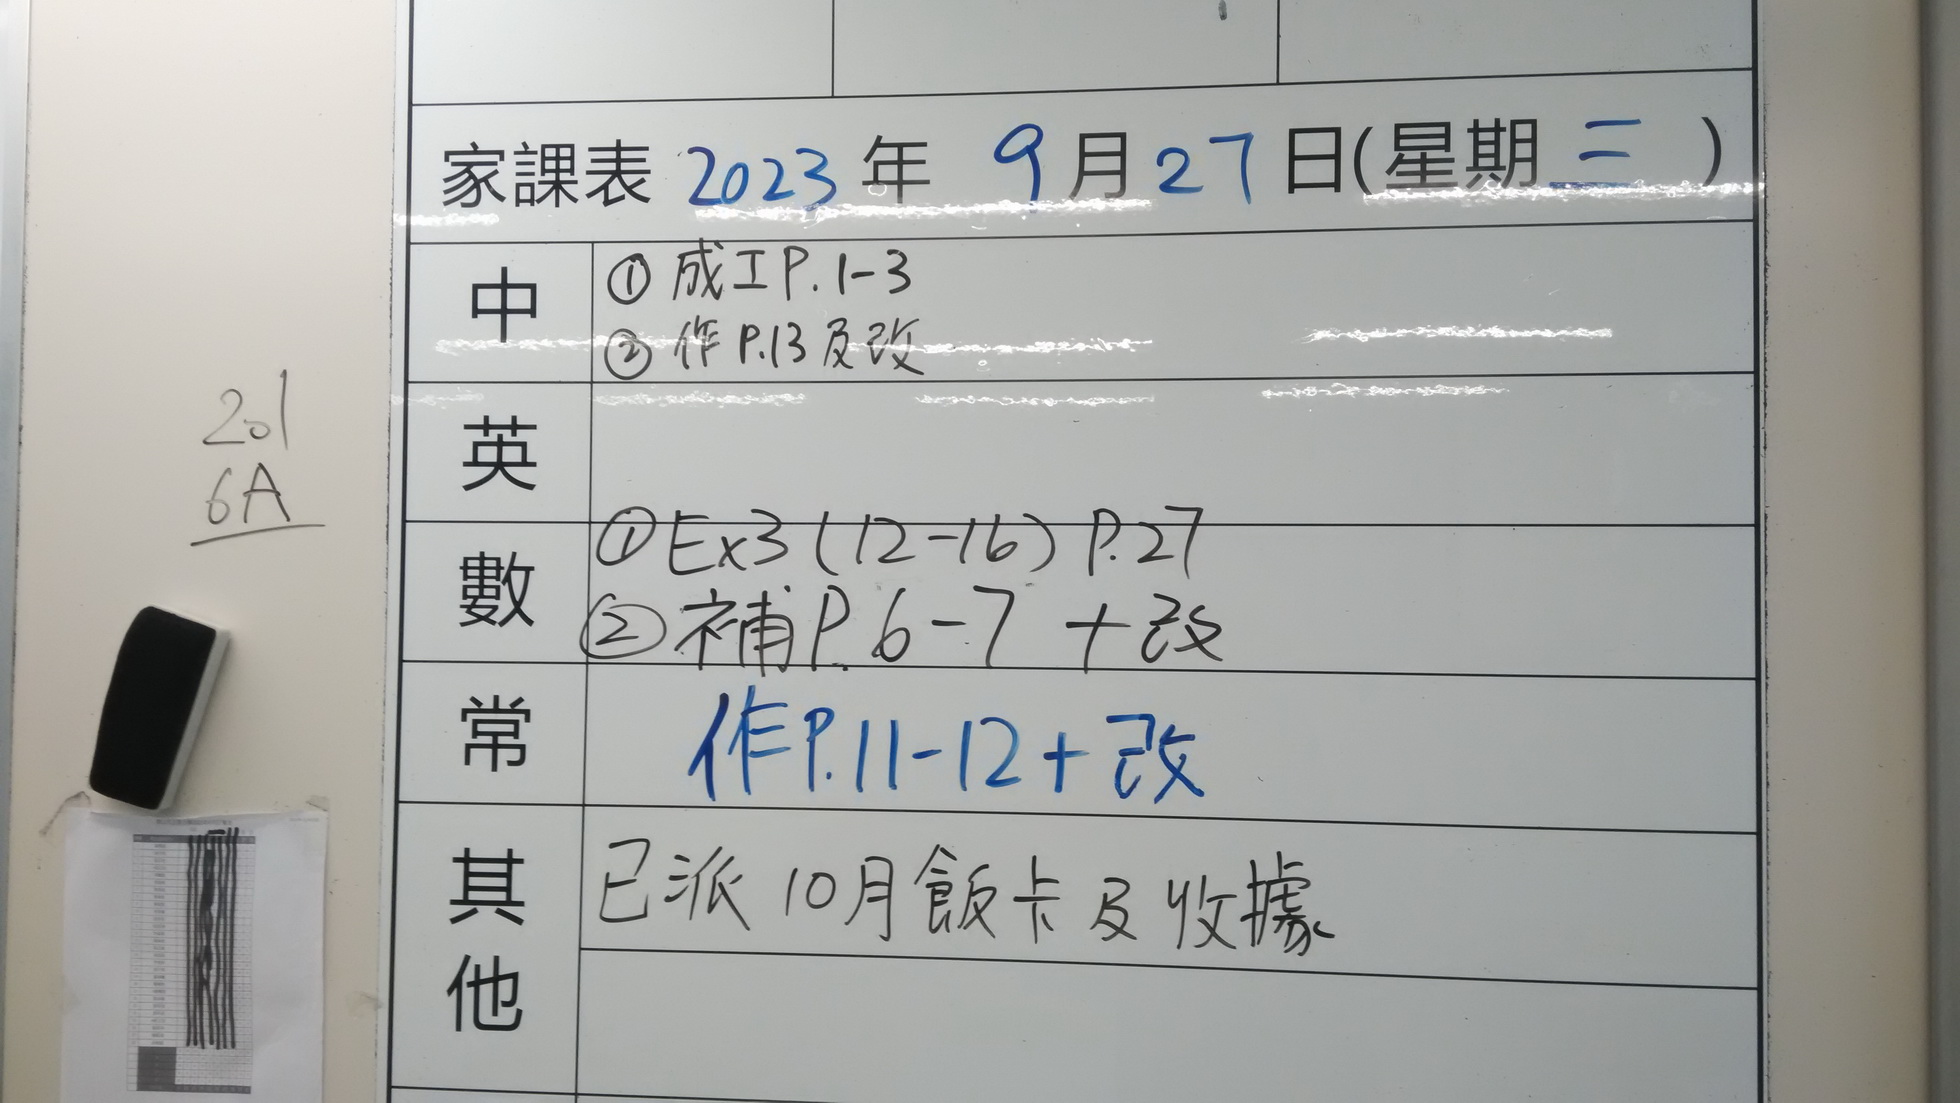 家課表 2023 年 9 月 27 日(星期 三 )
中
① 成工P.1-3
② 作P.13及改
英
數
① Ex3 (12-16) P.27
② 補P.6-7 + 改
常
作P.11-12 + 改
其他
已派 10月飯卡及收據
201
6A